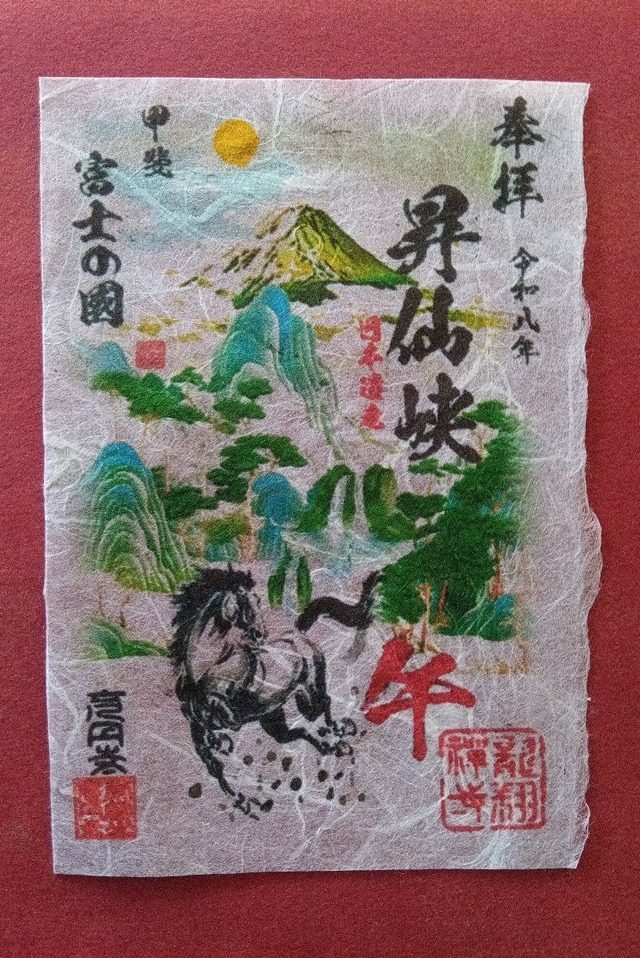 奉拝
令和八年
昇仙峡
日本遺産
甲斐
富士の國
午
龍翔
禅寺